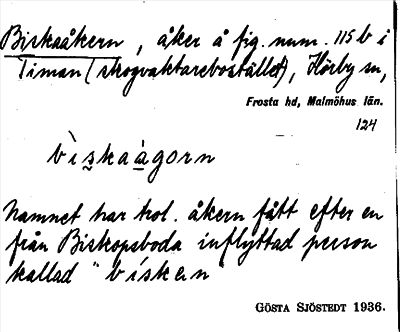 Biskaåkern, åker å fig. num. 115 b i
Timan (skogvaktarebostället), Hörby sn,
Frosta hd, Malmöhus län.
124
bìskaàgorn
Namnet har trol. åkern fått efter en
från Biskopsboda inflyttad person
kallad "bísken"
GÖSTA SJÖSTEDT 1936.